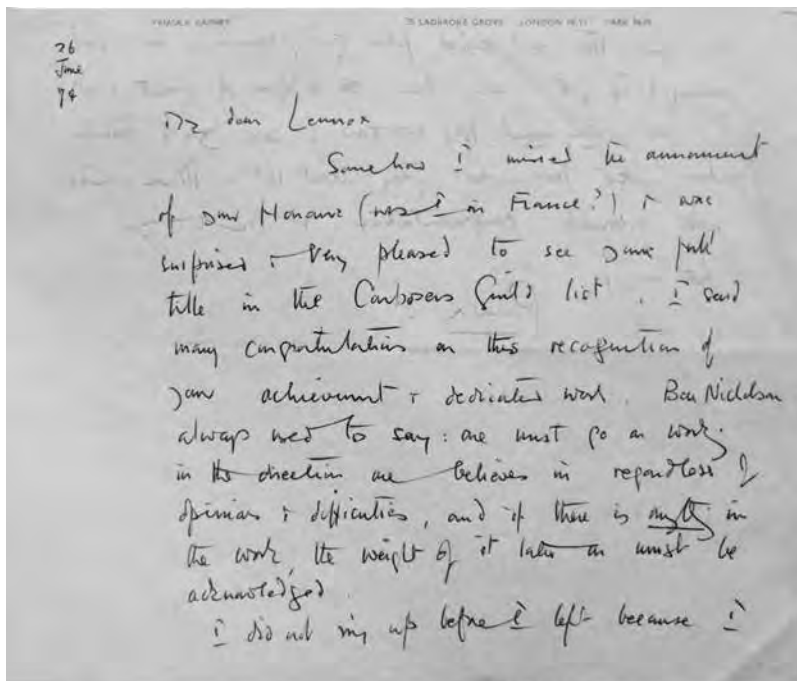 PRIAULX RAINIER 75 LADBROKE GROVE LONDON W.11 PARK
26
June
74
My dear Lennox
Somehow I missed the announcement
of your Honour (was I in France?) & was
surprised & very pleased to see your full
title in the Composers Guild list. I send
many congratulations on this recognition of
your achievement & dedicated work. Ben Nicholson
always used to say: one must go on working
in the direction one believes in regardless of
opinions & difficulties, and if there is anything in
the work, the weight of it later on must be
acknowledged.
I did not ring up before I left because I